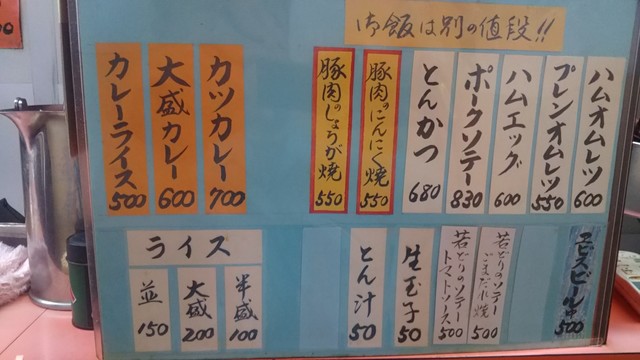 御飯は別の値段!!
ハムオムレツ 600
プレンオムレツ 550
ハムエッグ 600
ポークソテー 830
とんかつ 680
豚肉のにんにく焼 550
豚肉のしょうが焼 550
カツカレー 700
大盛カレー 600
カレーライス 500
ヱビスビール中 500
若どりのソテー
ごまだれ焼 500
若どりのソテー
トマトソース 500
生玉子 50
とん汁 50
ライス
半盛 100
大盛 200
並 150